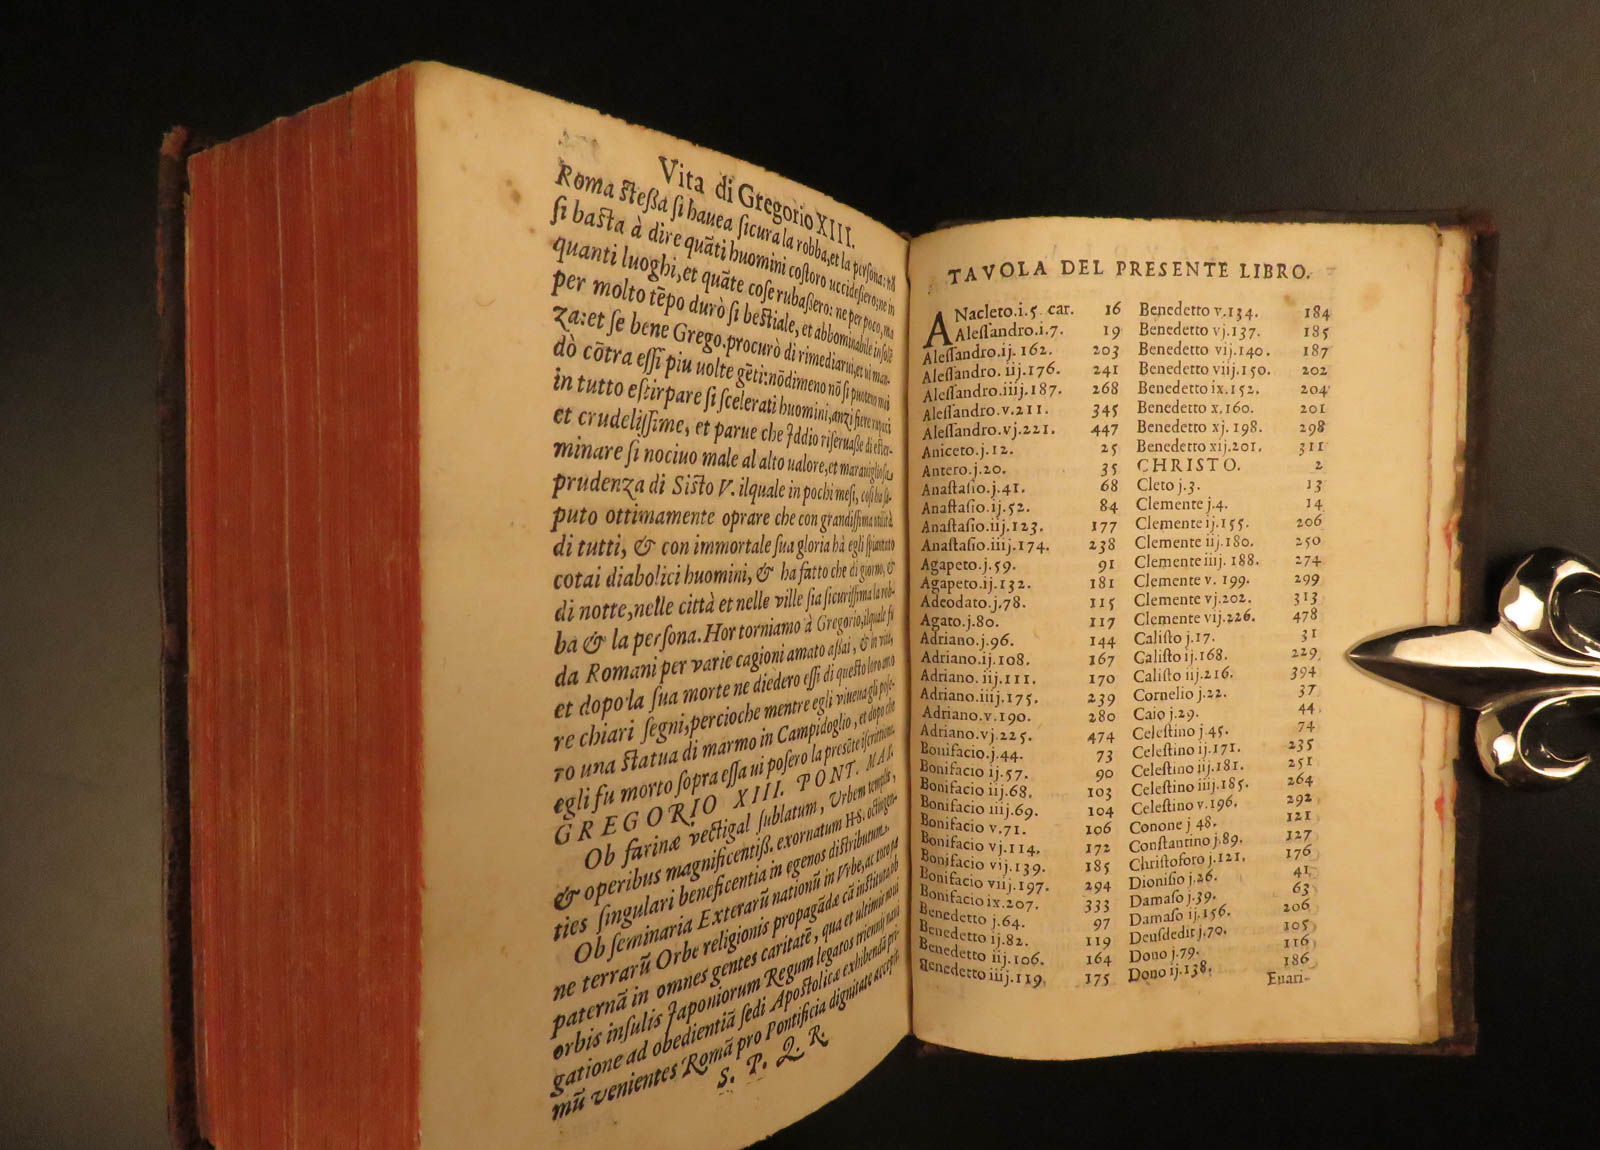 Vita di Gregorio XIII.
Roma ſteſſa ſi hauea ſicura la robba, et la perſona:
ſi baſta à dire quāti huomini coſtoro uccideſſero: ne in
quanti luoghi, et quāte coſe rubaſſero: ne per poco, ma
per molto tēpo durò ſi beſtiale, et abbominabile inſolē
za: et ſe bene Grego. procurò di rimediarui, et ui man-
dò cōtra eſſi piu uolte gēti: nōdimeno nō ſi puotero mai
in tutto eſtirpare ſi ſcelerati huomini, anzi fiere rapaci
et crudeliſſime, et parue che Iddio riſeruaſſe di eſter-
minare ſi nociuo male al alto ualore, et marauiglioſa
prudenza di Siſto V. ilquale in pochi meſi, coſi ha ſa-
puto ottimamente oprare che con grandiſſima utilità
di tutti, & con immortale ſua gloria hà egli ſpiantato
cotai diabolici huomini, & ha fatto che di giorno, &
di notte, nelle città et nelle ville ſia ſicuriſſima la rob-
ba & la perſona. Hor torniamo à Gregorio, ilquale fù
da Romani per varie cagioni amato aſſai, & in vita,
et dopo la ſua morte ne diedero eſſi di queſto loro amo
re chiari ſegni, percioche mentre egli viuena gli poſe-
ro una ſtatua di marmo in Campidoglio, et dopo che
egli fu morto ſopra eſſa ui poſero la preſēte iſcrittione.
GREGORIO XIII. PONT. MAX.
Ob farinæ vectigal ſublatum, Vrbem templis,
& operibus magnificentiſſ. exornatum H-S. octingen-
ties ſingulari beneficentia in egenos diſtributum.
Ob ſeminaria Exterarū nationū in Vrbe, ac toto pæ
ne terrarū Orbe religionis propagādæ cā inſtituta ob
paternā in omnes gentes caritatē, qua et ultimis noui
orbis inſulis Iaponiorum Regum legatos triennij naui
gatione ad obedientiā ſedi Apoſtolicæ exhibendā pri-
mū venientes Romā pro Pontificia dignitate accepit.
S. P. Q. R.
TAVOLA DEL PRESENTE LIBRO.
ANacleto.i.5 car. 16
Aleſſandro.i.7. 19
Aleſſandro.ij.162. 203
Aleſſandro.iij.176. 241
Aleſſandro.iiij.187. 268
Aleſſandro.v.211. 345
Aleſſandro.vj.221. 447
Aniceto.j.12. 25
Antero.j.20. 35
Anaſtaſio.j.41. 68
Anaſtaſio.ij.52. 84
Anaſtaſio.iij.123. 177
Anaſtaſio.iiij.174. 238
Agapeto.j.59. 91
Agapeto.ij.132. 181
Adeodato.j.78. 115
Agato.j.80. 117
Adriano.j.96. 144
Adriano.ij.108. 167
Adriano.iij.111. 170
Adriano.iiij.175. 239
Adriano.v.190. 280
Adriano.vj.225. 474
Bonifacio j.44. 73
Bonifacio ij.57. 90
Bonifacio iij.68. 103
Bonifacio iiij.69. 104
Bonifacio v.71. 106
Bonifacio vj.114. 172
Bonifacio vij.139. 185
Bonifacio viij.197. 294
Bonifacio ix.207. 333
Benedetto j.64. 97
Benedetto ij.82. 119
Benedetto iij.106. 164
Benedetto iiij.119. 175
Benedetto v.134. 184
Benedetto vj.137. 185
Benedetto vij.140. 187
Benedetto viij.150. 202
Benedetto ix.152. 204
Benedetto x.160. 201
Benedetto xj.198. 298
Benedetto xij.201. 311
CHRISTO. 2
Cleto j.3. 13
Clemente j.4. 14
Clemente ij.155. 206
Clemente iij.180. 250
Clemente iiij.188. 274
Clemente v. 199. 299
Clemente vj.202. 313
Clemente vij.226. 478
Caliſto j.17. 31
Caliſto ij.168. 229
Caliſto iij.216. 394
Cornelio j.22. 37
Caio j.29. 44
Celeſtino j.45. 74
Celeſtino ij.171. 235
Celeſtino iij.181. 251
Celeſtino iiij.185. 264
Celeſtino v.196. 292
Conone j 48. 121
Conſtantino j.89. 127
Chriſtoforo j.121. 176
Dioniſio j.26. 41
Damaſo j.39. 63
Damaſo ij.156. 206
Deuſdedit j.70. 105
Dono j.79. 116
Dono ij.138. 186
Euari-